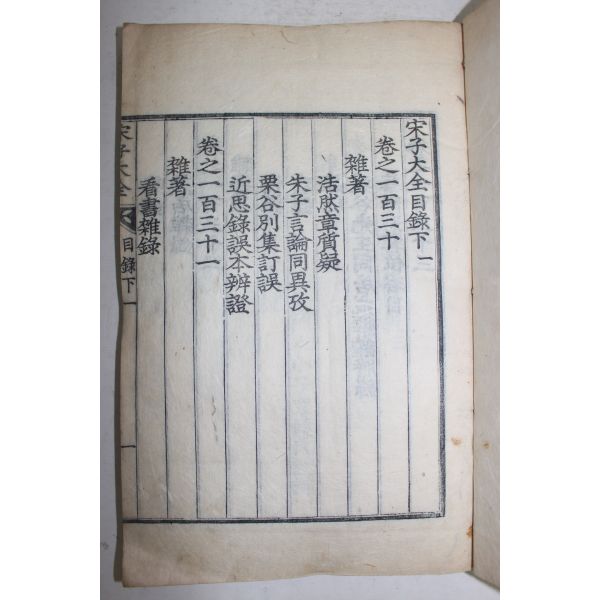 宋子大全目錄下一
卷之一百三十
雜著
浩然章質疑
朱子言論同異攷
栗谷別集訂誤
近思錄誤本辨證
卷之一百三十一
雜著
看書雜錄
宋子大全
目錄下
一